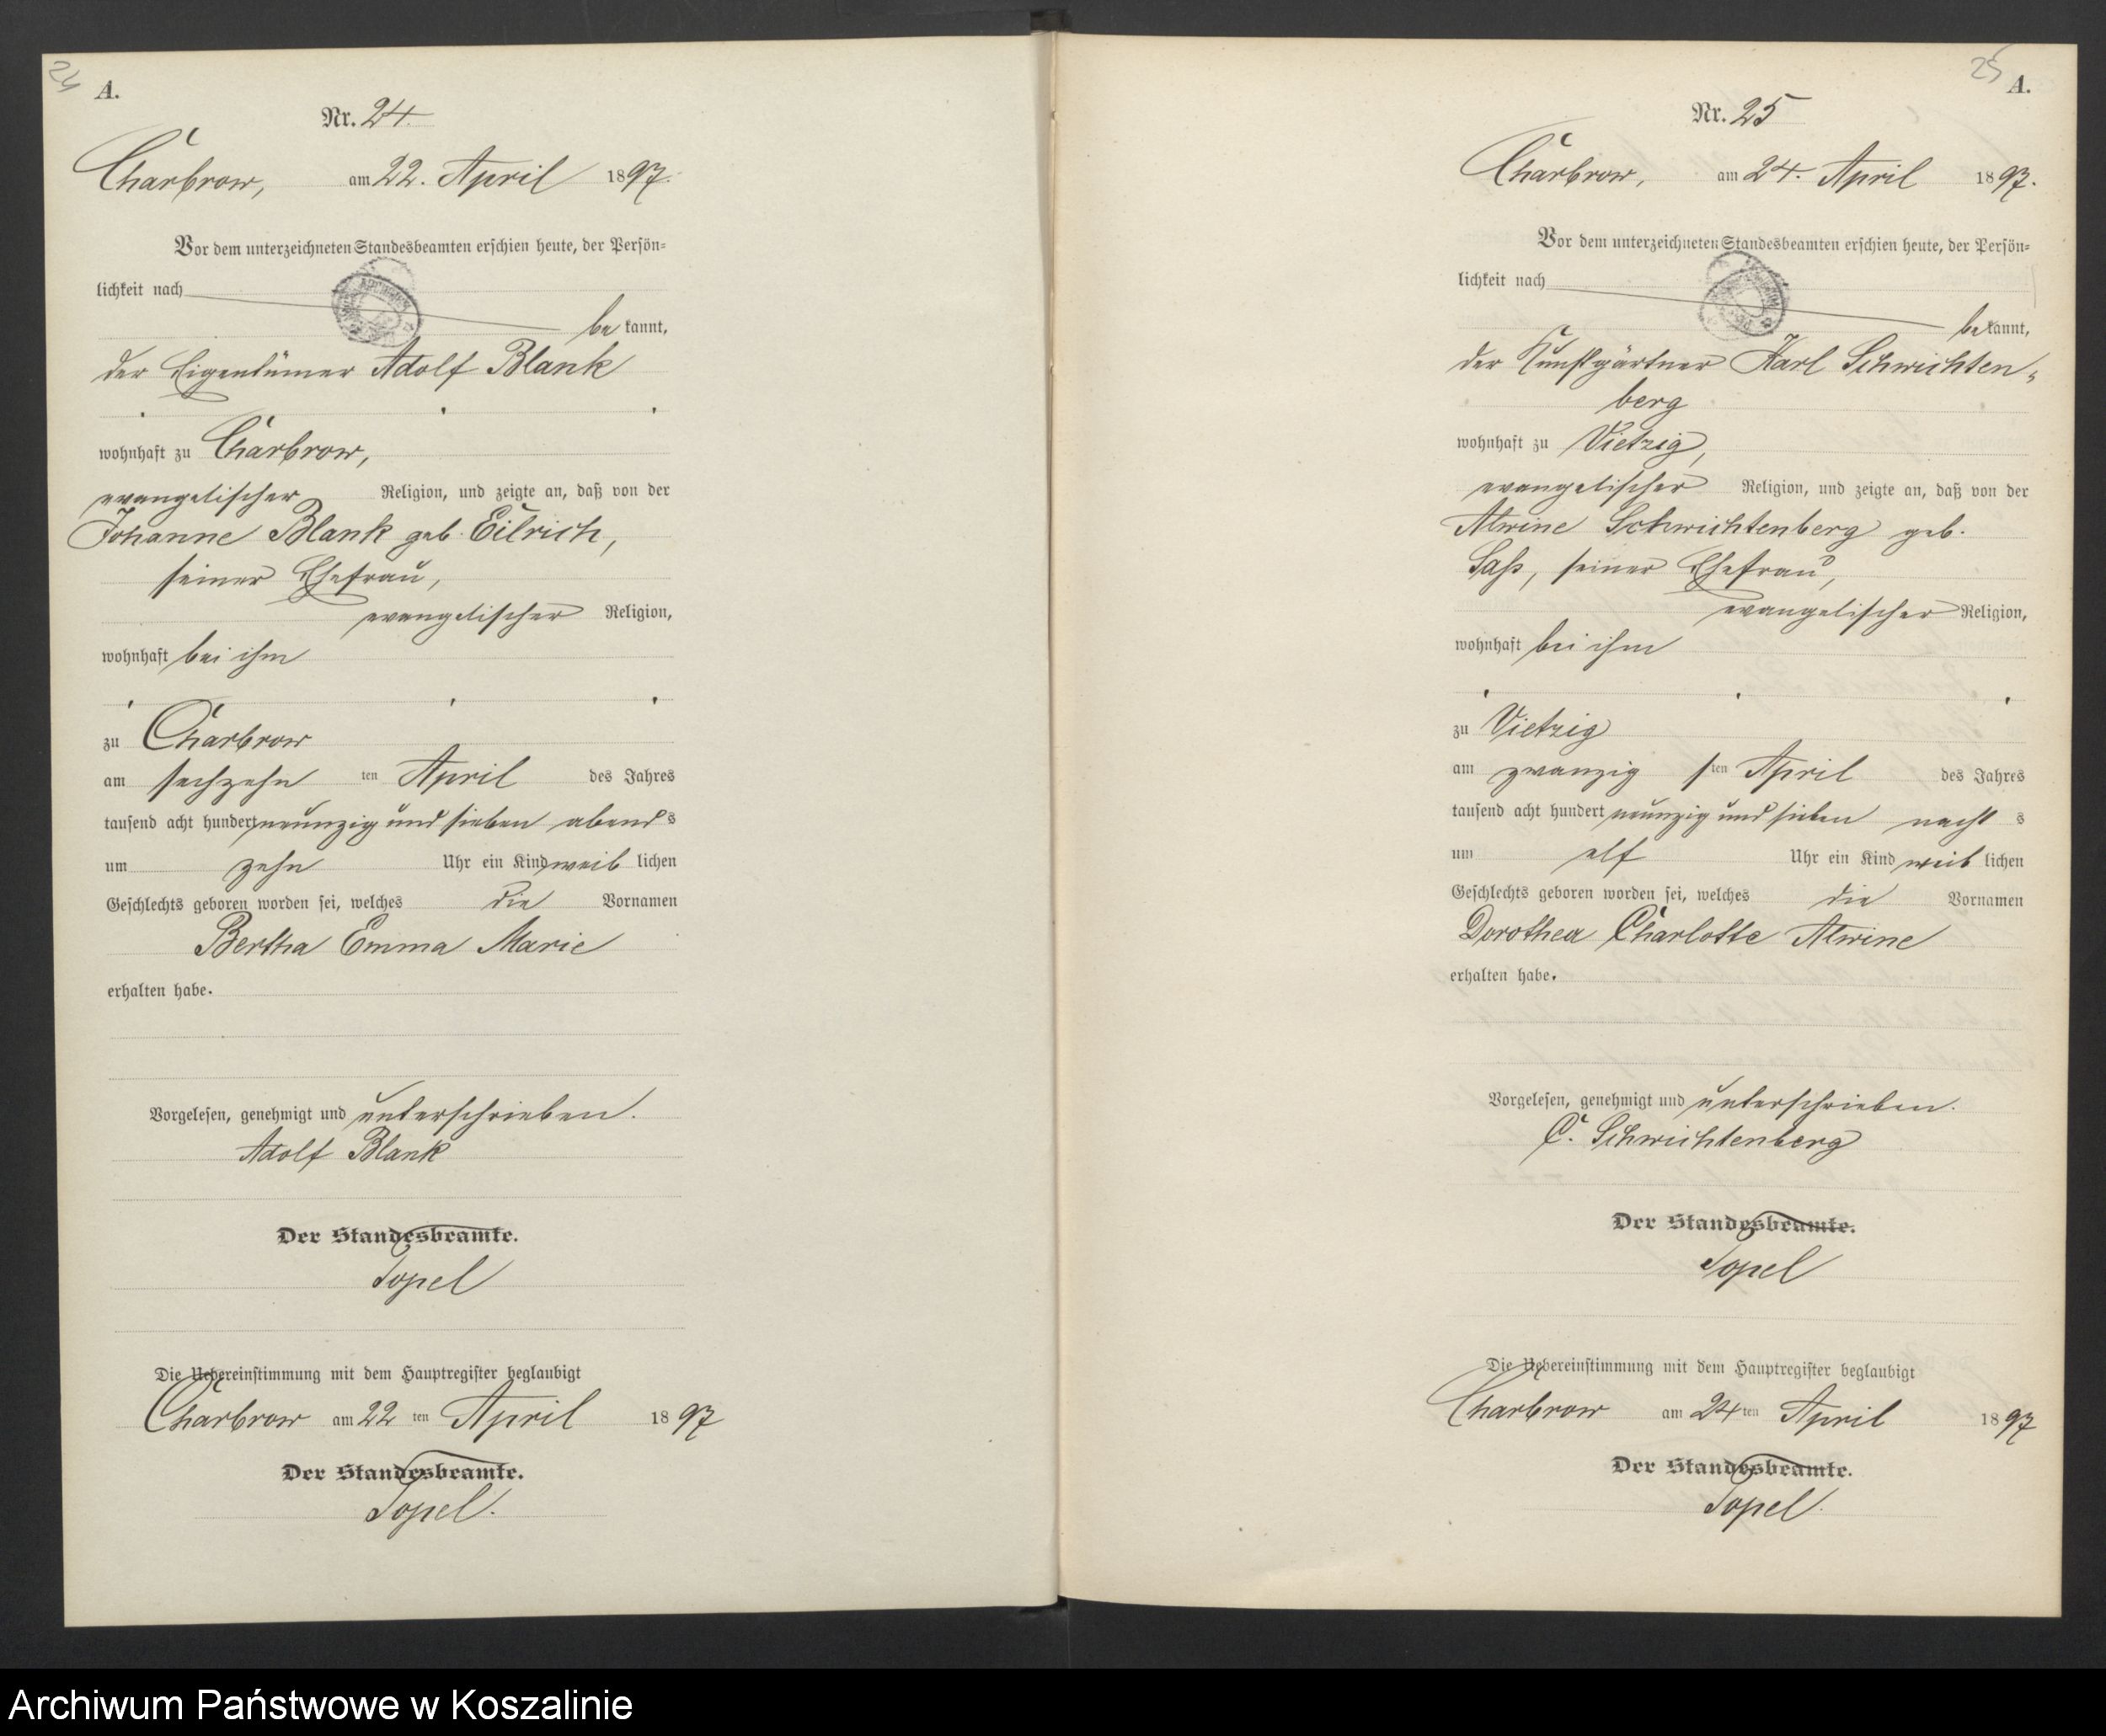 24
A.
Nr. 24.
Charbrow, am 22. April 1897.
Vor dem unterzeichneten Standesbeamten erschien heute, der Persön-
lichkeit nach
be kannt,
der Eigentümer Adolf Blank
wohnhaft zu Charbrow,
evangelischer Religion, und zeigte an, daß von der
Johanne Blank geb. Eilrich,
seiner Ehefrau,
evangelischer Religion,
wohnhaft bei ihm
zu Charbrow
am sechzehn ten April des Jahres
tausend acht hundert neunzig und sieben abend s
um zehn Uhr ein Kind weib lichen
Geschlechts geboren worden sei, welches die Vornamen
Bertha Emma Marie
erhalten habe.
Vorgelesen, genehmigt und unterschrieben.
Adolf Blank
Der Standesbeamte.
Topel
Die Uebereinstimmung mit dem Hauptregister beglaubigt
Charbrow am 22 ten April 1897
Der Standesbeamte.
Topel.
25
A.
Nr. 25
Charbrow, am 24. April 1897.
Vor dem unterzeichneten Standesbeamten erschien heute, der Persön-
lichkeit nach
be kannt,
der Kunstgärtner Karl Schwichten-
berg
wohnhaft zu Vietzig,
evangelischer Religion, und zeigte an, daß von der
Alwine Schwichtenberg geb.
Saß, seiner Ehefrau,
evangelischer Religion,
wohnhaft bei ihm
zu Vietzig
am zwanzig sten April des Jahres
tausend acht hundert neunzig und sieben nacht s
um elf Uhr ein Kind weib lichen
Geschlechts geboren worden sei, welches die Vornamen
Dorothea Charlotte Alwine
erhalten habe.
Vorgelesen, genehmigt und unterschrieben.
C. Schwichtenberg
Der Standesbeamte.
Topel
Die Uebereinstimmung mit dem Hauptregister beglaubigt
Charbrow am 24 ten April 1897
Der Standesbeamte.
Topel.
Archiwum Państwowe w Koszalinie